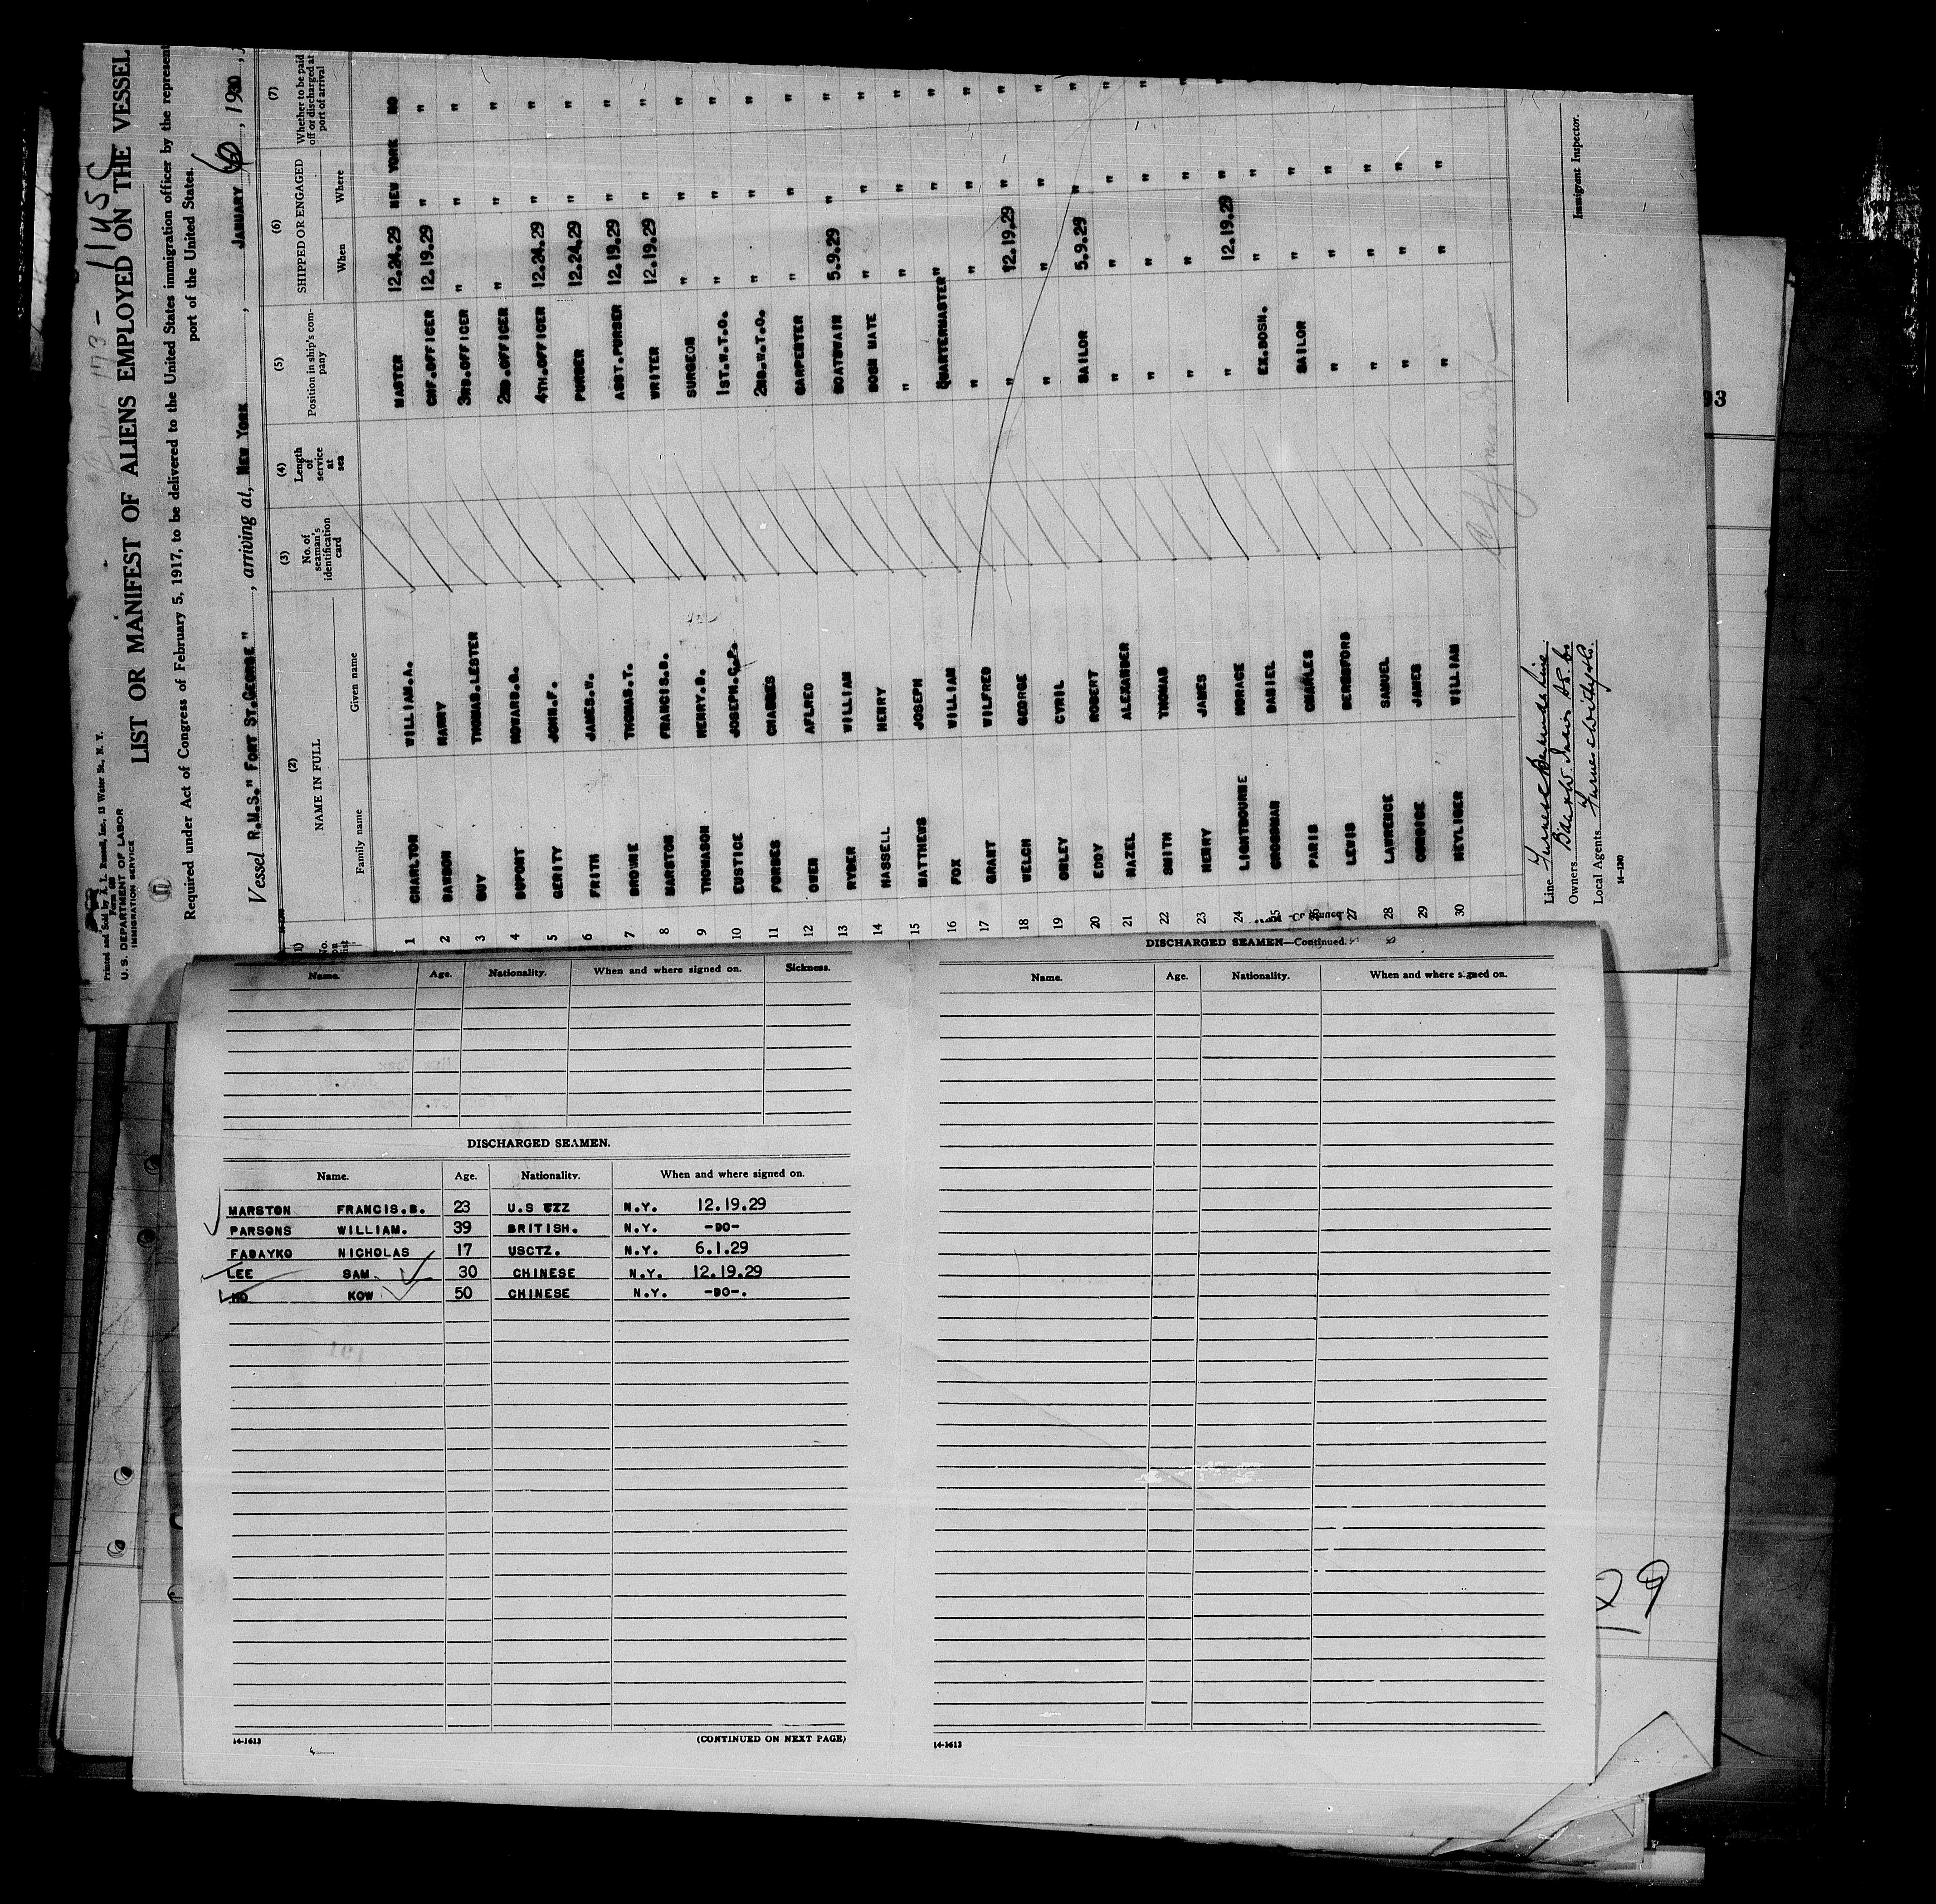 Printed and Sold by A. L. Russell, Inc., 13 Water St., N. Y.
U. S. DEPARTMENT OF LABOR
IMMIGRATION SERVICE
LIST OR MANIFEST OF ALIENS EMPLOYED ON THE VESSEL
Required under Act of Congress of February 5, 1917, to be delivered to the United States immigration officer by the represent
port of the United States.
Vessel R.M.S." FORT ST.GEORGE ", arriving at, NEW YORK, JANUARY 1930
(2) (3) (4) (5) (6) (7)
NAME IN FULL No. of seaman's identification card Length of service at sea Position in ship's company SHIPPED OR ENGAGED Whether to be paid off or discharged at port of arrival
Family name Given name When Where
1 CHARLTON WILLIAM.A. MASTER 12.24.29 NEW YORK NO
2 DAWSON HARRY CHF.OFFICER 12.19.29 " "
3 GUY THOMAS.LESTER 3RD.OFFICER " " "
4 DUPONT HOWARD.G. 2ND.OFFICER " " "
5 GERITY JOHN.F. 4TH.OFFICER 12.24.29 " "
6 FRITH JAMES.U. PURSER 12.24.29 " "
7 BROWNE THOMAS.T. ASST.PURSER 12.19.29 " "
8 MARSTON FRANCIS.B. WRITER 12.19.29 " "
9 THOMASON HENRY.D. SURGEON " " "
10 EUSTICE JOSEPH.C.P. 1ST.W.T.O. " " "
11 FORBES CHARLES 2ND.W.T.O. " " "
12 OWEN AFLRED CARPENTER " " "
13 RYDER WILLIAM BOATSWAIN 5.9.29 " "
14 HASSELL HENRY BOSN MATE " " "
15 MATTHEWS JOSEPH " " " "
16 FOX WILLIAM QUARTERMASTER" " "
17 GRANT WILFRED " " " "
18 WELCH GEORGE " 12.19.29 " "
19 OBLEY CYRIL " " " "
20 EDDY ROBERT SAILOR 5.9.29 " "
21 HAZEL ALEXANDER " " " "
22 SMITH THOMAS " " " "
23 HENRY JAMES " " " "
24 LIGHTBOURNE HORACE " 12.19.29 " "
25 GROSSMAN DANIEL EX.BOSN. " " "
26 PARIS CHARLES SAILOR " " "
27 LEWIS BERESFORD " " "
28 LAWRENCE SAMUEL " " "
29 JAMES " " "
30 HEYLIGER WILLIAM " " "
Line Furness Bermuda Line
Owners
Local Agents Furness Withy & Co.
Immigrant Inspector.
14-1240
93
Name. Age. Nationality. When and where signed on. Sickness.
DISCHARGED SEAMEN.
Name. Age. Nationality. When and where signed on.
MARSTON FRANCIS.B. 23 U.S N.Y. 12.19.29
PARSONS WILLIAM. 39 BRITISH. N.Y. -DO-
FABAYKO NICHOLAS 17 USCTZ. N.Y. 6.1.29
LEE SAM. 30 CHINESE N.Y. 12.19.29
HO KOW 50 CHINESE N.Y. -DO-.
14-1613
(CONTINUED ON NEXT PAGE)
DISCHARGED SEAMEN—Continued.
Name. Age. Nationality. When and where signed on.
14-1613
29